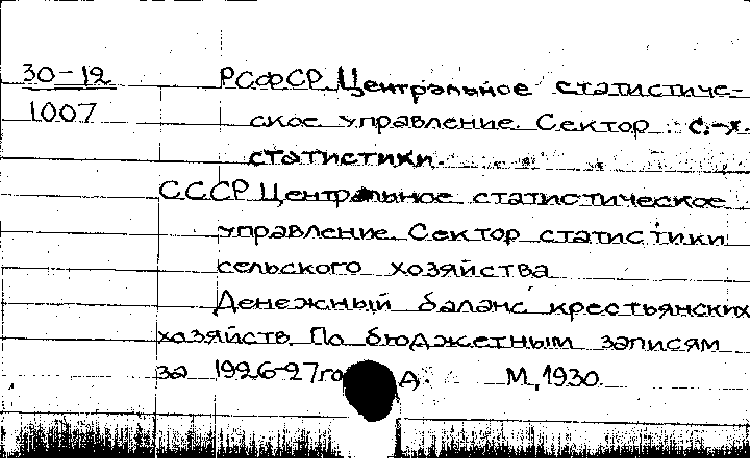 30-12 РСФСР. Центральное статистиче-
1007 ское управление. Сектор с.-х.
статистики.
СССР Центральное статистическое
управление. Сектор статистики
сельского хозяйства
Денежный баланс крестьянских
хозяйств По бюджетным записям
за 1926-27го А М, 1930